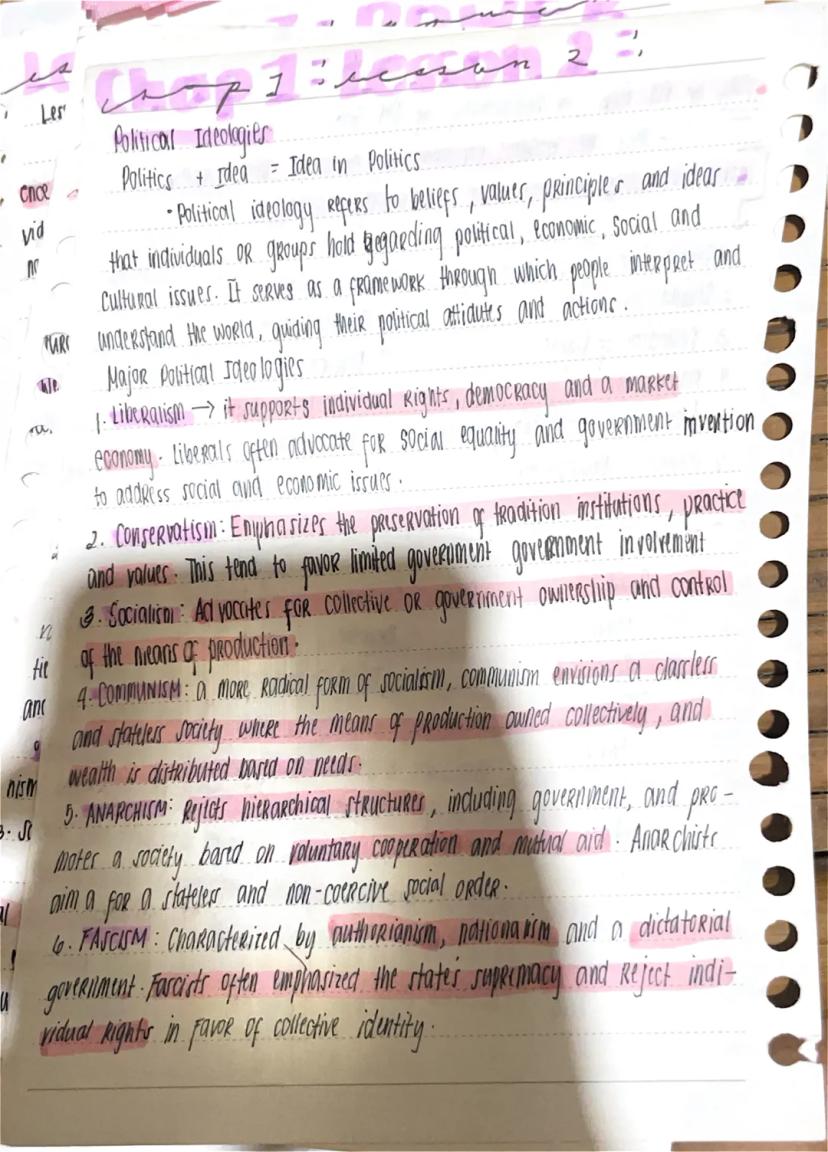 Chap 1: Lesson 2:
Political Ideologies
Politics + Idea = Idea in Politics
• Political ideology refers to beliefs, values, principles and ideas
that individuals or groups hold regarding political, economic, social and
cultural issues. It serves as a framework through which people interpret and
understand the world, guiding their political attidutes and actions.
Major Political Ideologies
1. Liberalism → it supports individual Rights, democracy and a market
economy. Liberals often advocate for social equality and government invention
to address social and economic issues.
2. Conservatism: Emphasizes the preservation of tradition institutions, practice
and values. This tend to favor limited government government involvement
3. Socialism: Advocates for collective or government ownership and control
of the means of production.
4. Communism: a more radical form of socialism, communism envisions a classless
and stateless society where the means of production owned collectively, and
wealth is distributed based on needs.
5. Anarchism: Rejects hierarchical structures, including government, and pro-
motes a society based on voluntary cooperation and mutual aid. Anarchists
aim a for a stateless and non-coercive social order.
6. Fascism: Characterized by authorianism, nationanism and a dictatorial
government. Fascists often emphasized the state's supremacy and reject indi-
vidual Rights in favor of collective identity.